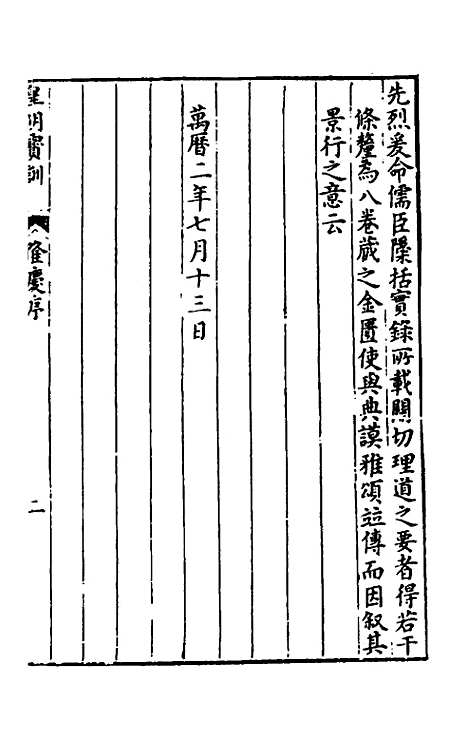 先烈爰命儒臣隱括實錄所載關切理道之要者得若干
條釐為八卷藏之金匱使與典謨雅頌竝傳而因叙其
景行之意云
萬曆二年七月十三日
皇明寶訓
隆慶序
二